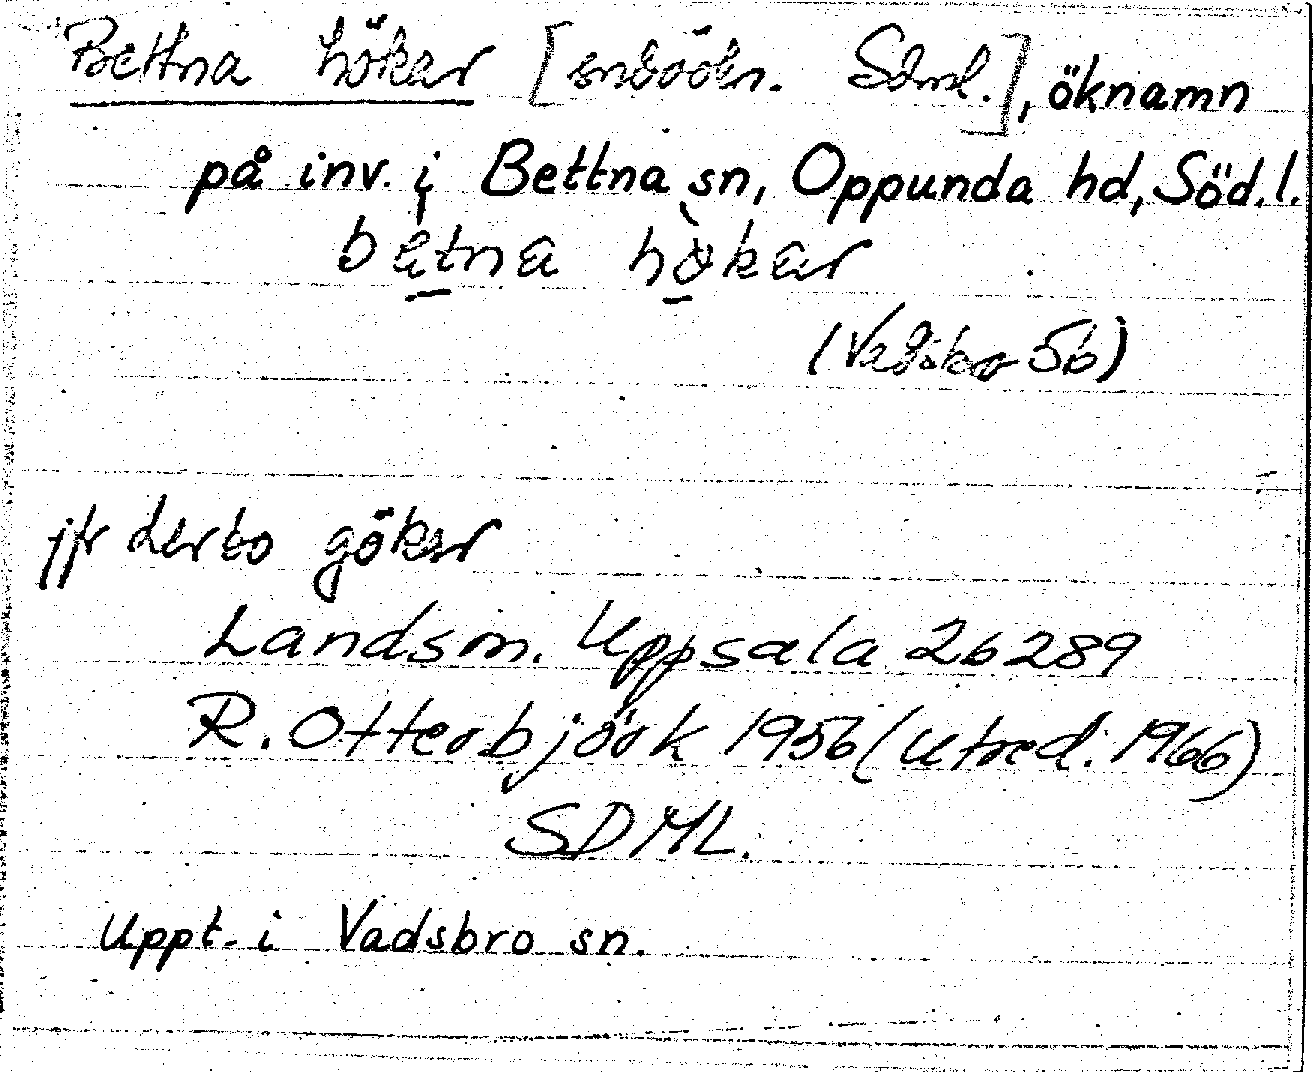 Bettna hökar [snboökn. Sdml.], öknamn
på inv. i Bettna sn, Oppunda hd, Söd.l.
betna hökar
(Vadsbro 56)
jfr Lerbo gökar
Landsm. Uppsala 26289
R. Otterbjörk 1956 (utred. 1966)
SDML.
Uppt. i Vadsbro sn.